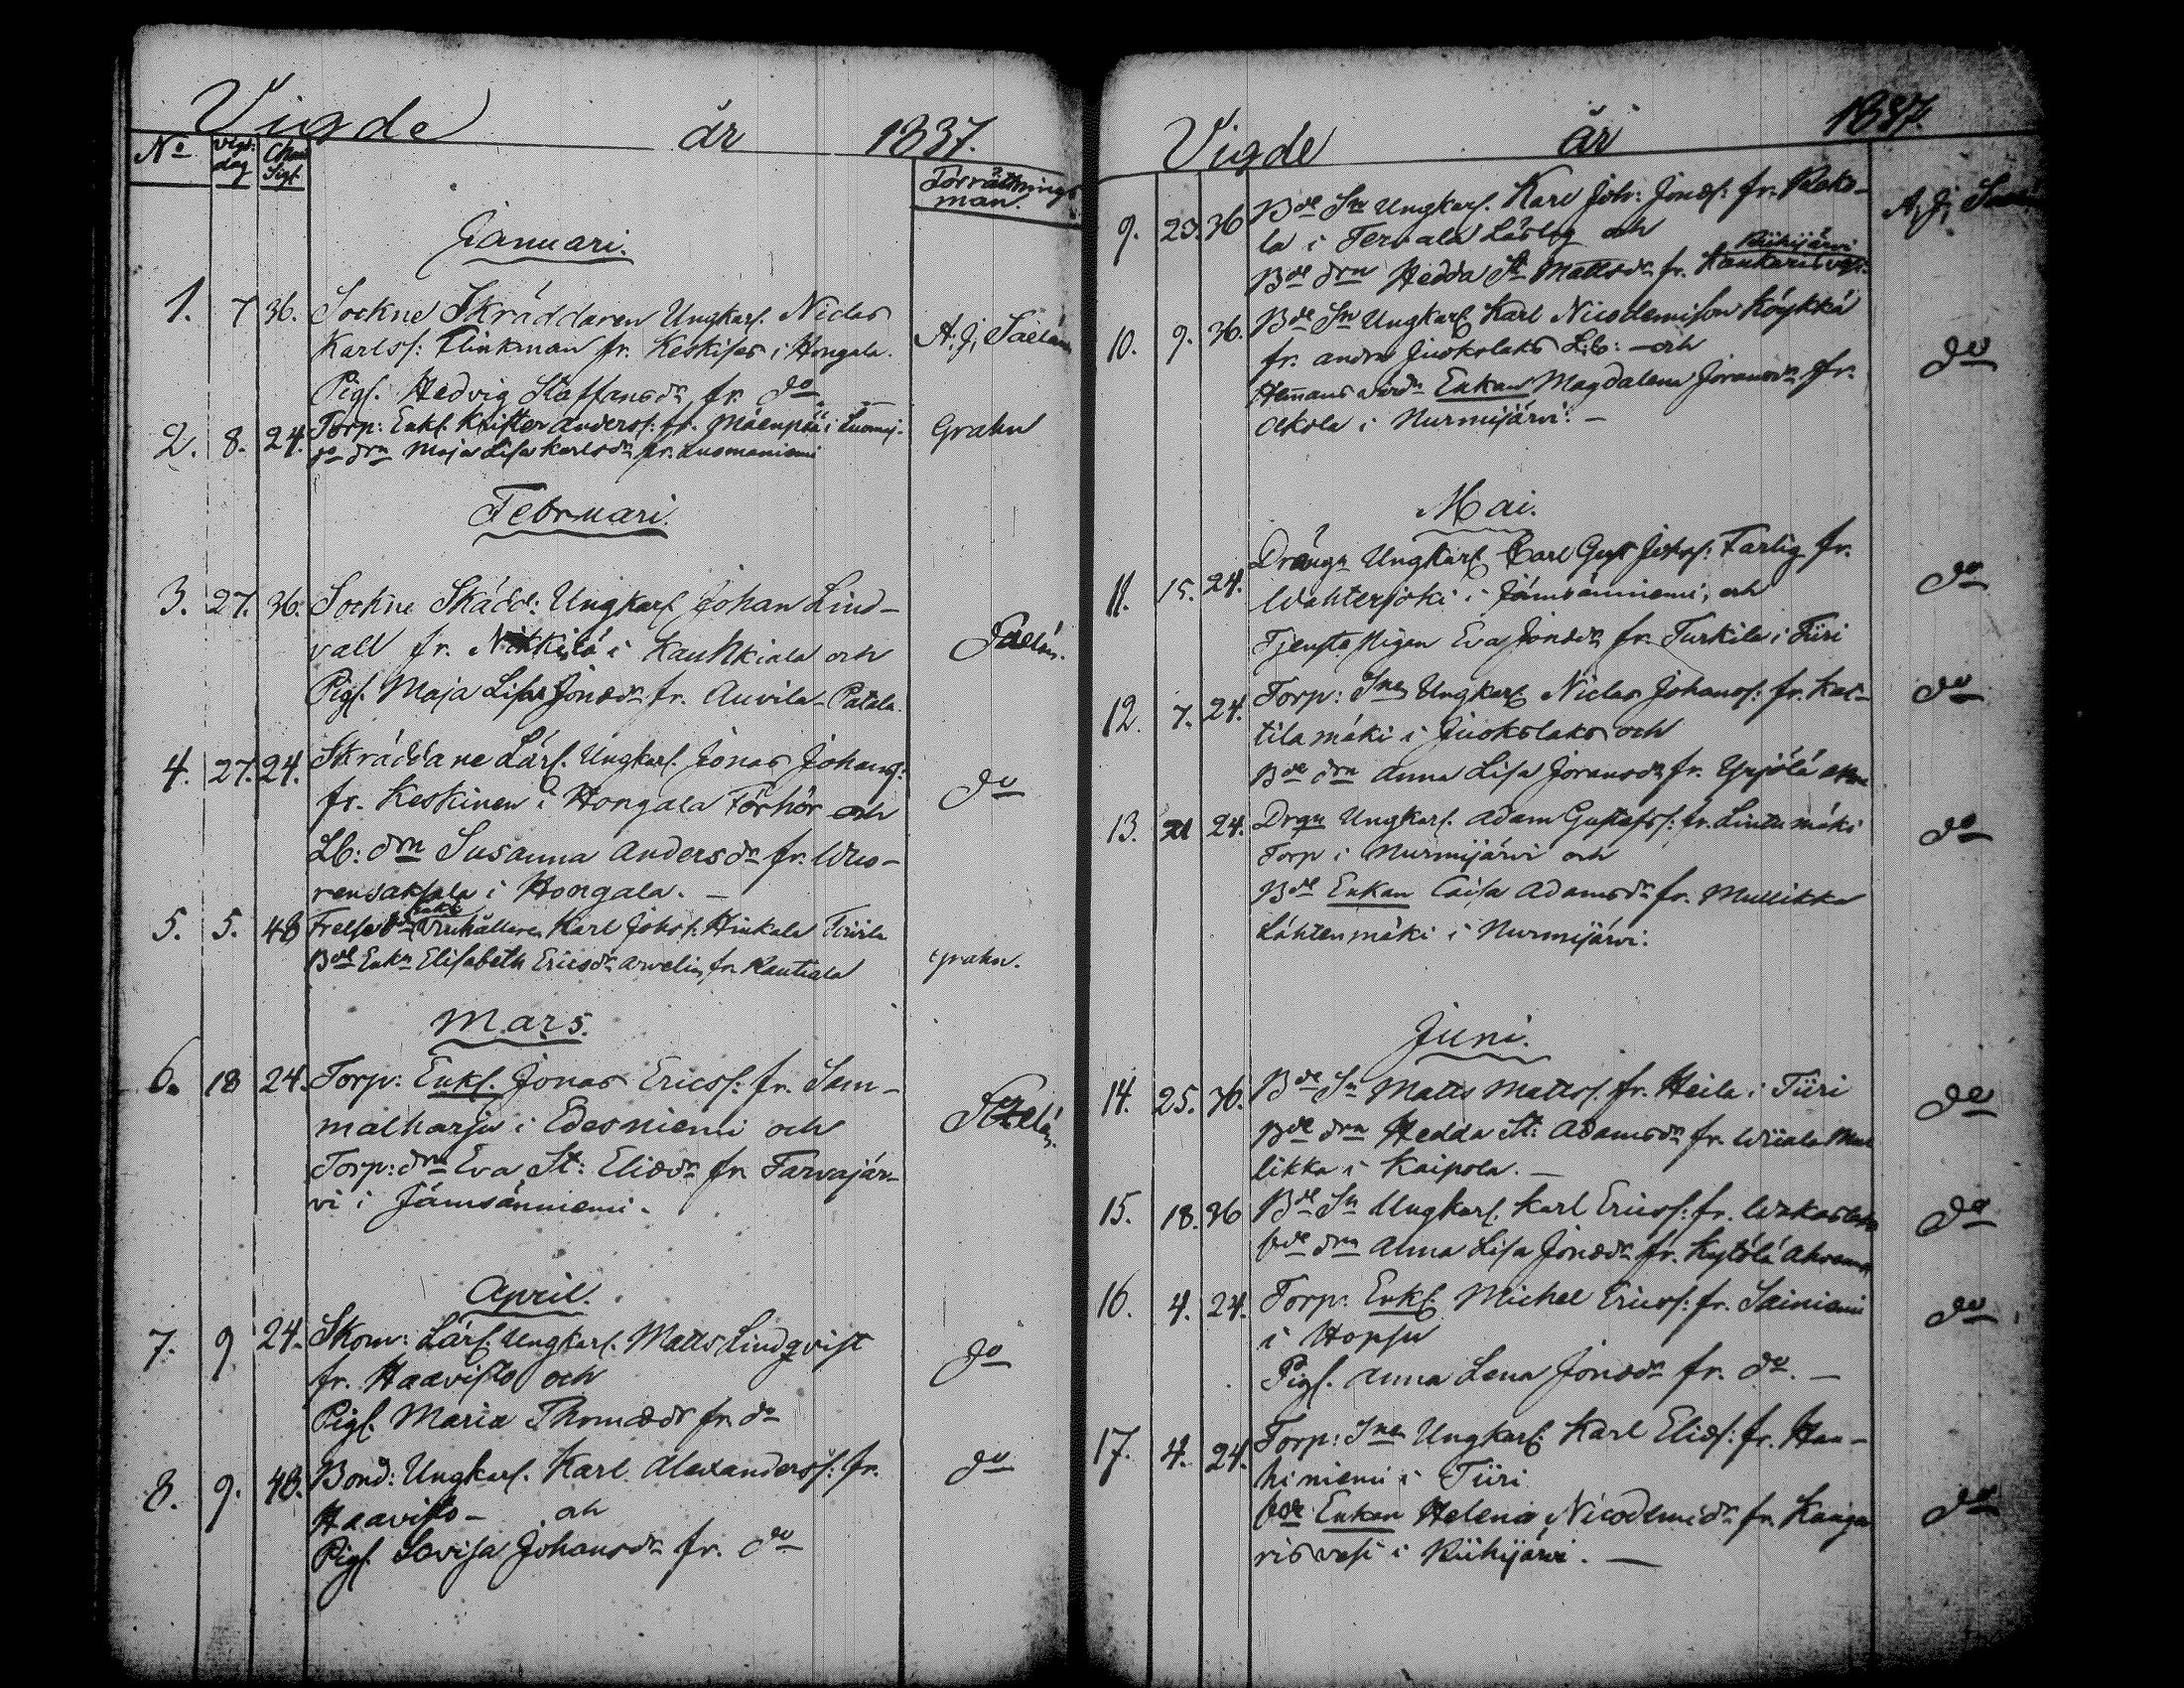 Vigde år 1837.
No Vigs: dag Char. Sigf. Förrättnings man.
Januari.
1. 7 36. Sockne Skräddaren Ungkarl. Niclas
Karlss: Flinkman fr. Keskises i Hongala. A. J. Saelan
Pigf. Hedvig Staffansdr fr. do
2. 8. 24. Torp: Enkl. Krister Anderss: fr. Mäenpää i Luomaj. Grahn
do drn Maja Lisa Karlsdr fr. Luomaniemi
Februari.
3. 27. 36. Sockne Skädd: Ungkarl Johan Lind-
vall fr. Nikkilä i Kauhkiala och Saelan.
Pigf. Maja Lisa Jonædr fr. Auvila-Patala.
4. 27. 24. Skräddare Lärl. Ungkarl. Jonas Johanss:
fr. Keskinen i Hongala Förhör och do
Lb: drn Susanna Andersdr fr. Wuo-
rensaksala i Hongala.
5. 5. 48 Frelse Enkl. Karl Johs: Hinkala Tiirila
Bde Enkn Elisabeth Ericsdr Arvelin fr. Rautiala Grahn.
Mars.
6. 18 24. Torp: Enkl. Jonas Ericss: fr. Sam-
malharju i Edesniemi och Saelan.
Torp: drn Eva St: Eliædr fr. Tarvajär-
vi i Jämsänniemi.
April.
7. 9 24. Skom: Lärl. Ungkarl. Matts Lindqvist do
fr. Haavisto och
Pigf. Maria Thomædr fr. do
8. 9. 48. Bond: Ungkarl. Karl Alexanderss: fr. do
Haavisto - och
Pigf. Lovisa Johansdr fr. do
Vigde år 1837.
9. 23. 36 Bde Sn Ungkarl. Karl Joh: Jonæs: fr. Pako- A. J. Sael
la i Tervala Läslag och
Riihijärvi
Bde drn Hedda St. Mattsdr fr. Kankarisvesi.
10. 9. 36. Bde Sn Ungkarl Karl Nicodemison Köykkä do
fr. andra Juokslaks Lb: - och
Hemans värdn Enkan Magdalena Göransdr fr.
Ackola i Nurmijärvi. -
Mai.
11. 15. 24. Drängn Ungkarl Carl Gust Johss: Farlig fr. do
Wahterjoki i Jämsänniemi, och
Tjenste Pigan Eva Jonædr fr. Turkila i Tiiri
12. 7. 24. Torp: Sne Ungkarl Niclas Johanss: fr. Kat- do
tilamäki i Juokslaks och
Bde drn Anna Lisa Göransdr fr. Yrjölä
13. 21 24. Drgn Ungkarl. Adam Gustafss: fr. Lintumäki do
Torp i Nurmijärvi och
Bde Enkan Caisa Adamsdr fr. Mullikka
Lähtenmäki i Nurmijärvi.
Juni.
14. 25. 36. Bde Sn Matts Mattss. fr. Heila i Tiiri do
Bde drn Hedda St: Adamsdr fr. Wiiala Mul
likka i Kaipola. -
15. 18. 36 Bde Sn Ungkarl. Karl Ericss: fr. do
bde drn Anna Lisa Jonædr fr. Kytölä
16. 4. 24. Torp: Enkl. Michel Ericss: fr. Sainiemi do
i Hopsu
Pigf. Anna Lena Jonædr fr. do. -
17. 4. 24. Torp: Sne Ungkarl. Karl Eliæs: fr. Hau-
hiniemi i Tiiri
bde Enkan Helena Nicodemidr fr. Kanga do
risvesi i Riihijärvi. -